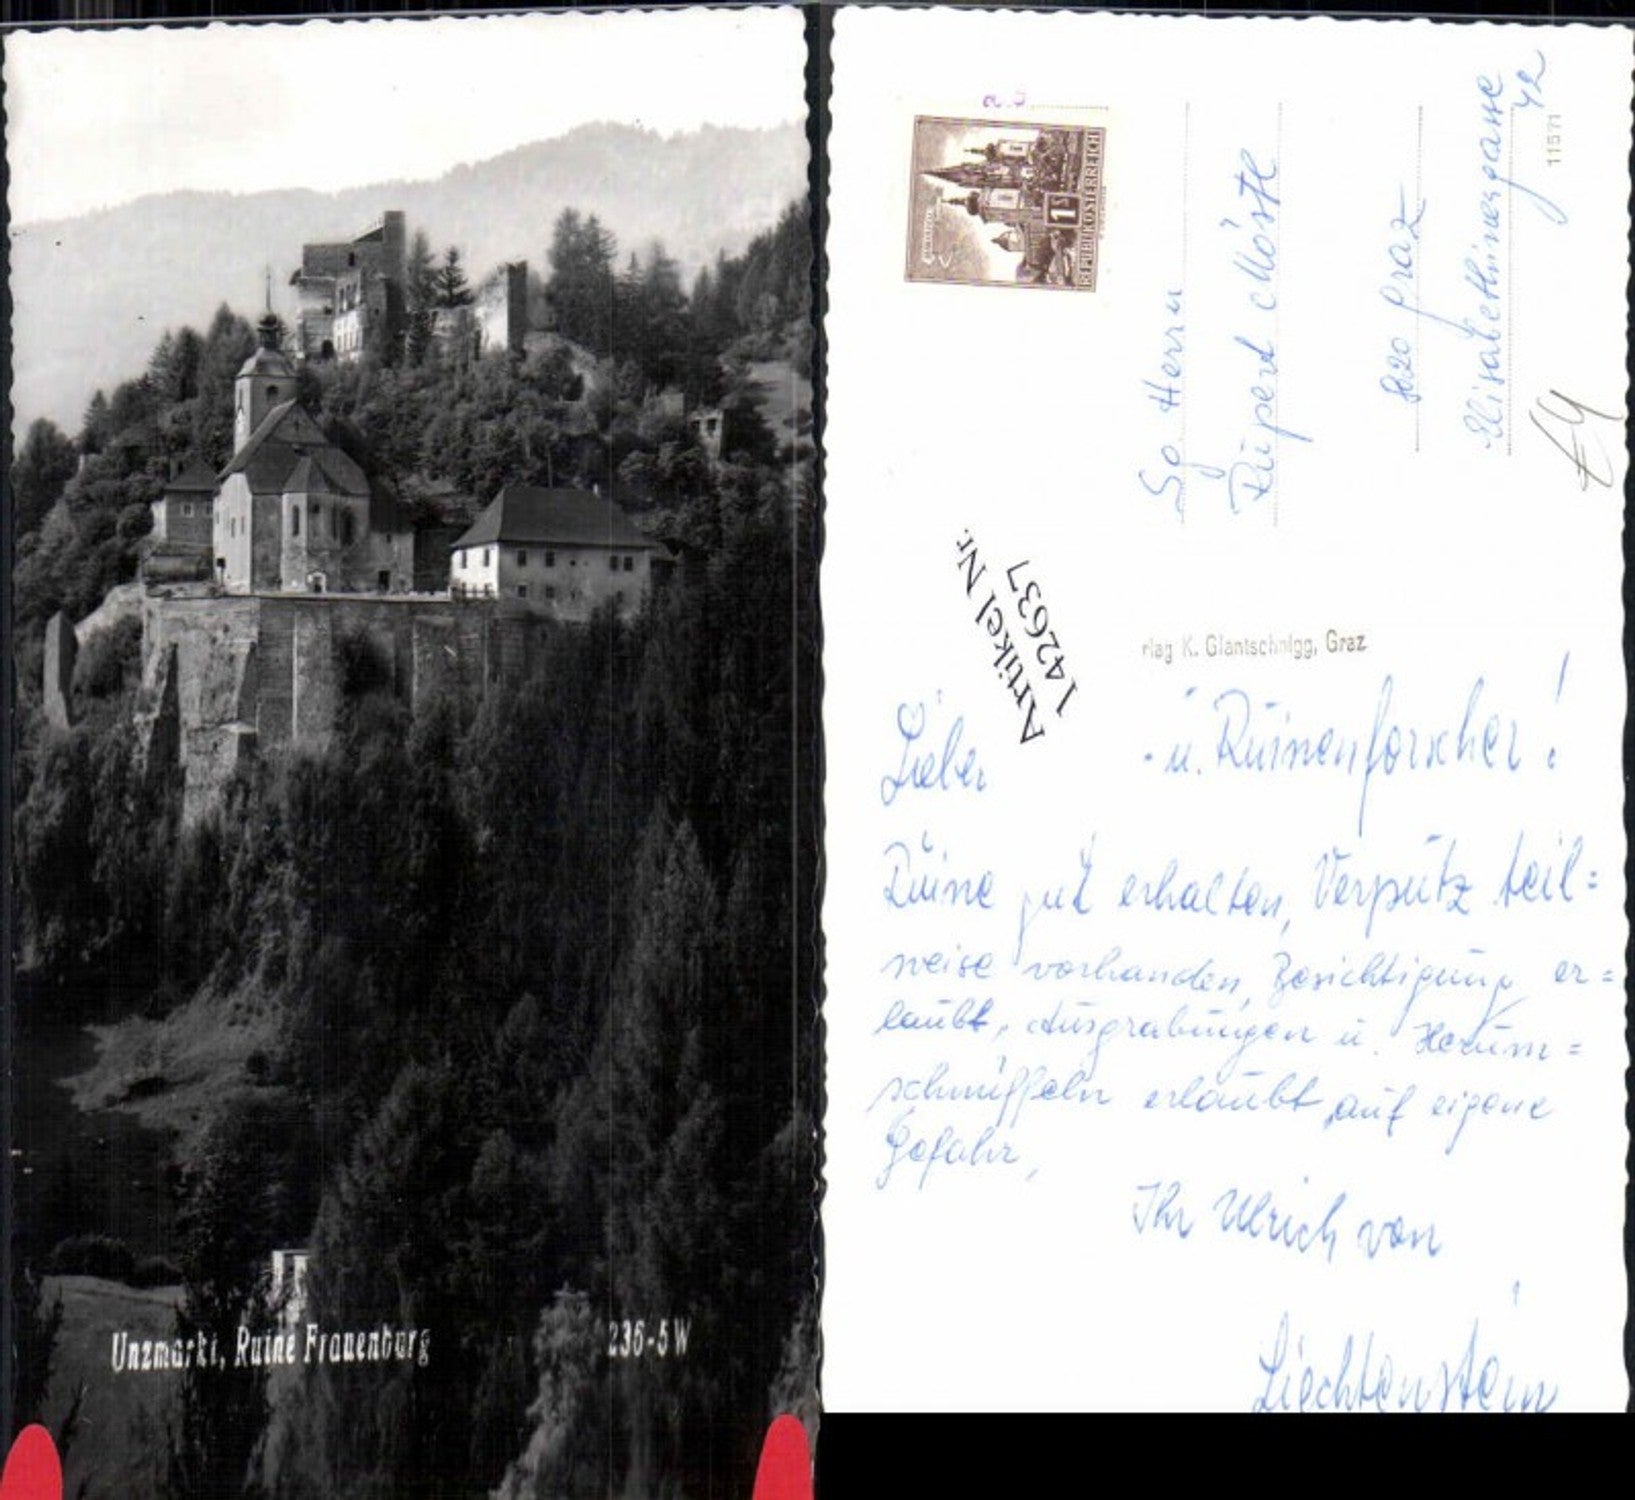 Unzmarkt, Ruine Frauenburg
236-5W
REPUBLIK ÖSTERREICH
1 S
Sg. Herrn
Rupert Möstl
8020 Graz
Elisabethinergasse
42
11571
Artikel Nr.
142637
rlag K. Glantschnigg, Graz
Lieber - u. Ruinenforscher!
Ruine gut erhalten, Verputz teil=
weise vorhanden, Besichtigung er=
laubt, Ausgrabungen u. Herum=
schnüffeln erlaubt auf eigene
Gefahr,
Ihr Ulrich von
Liechtenstein